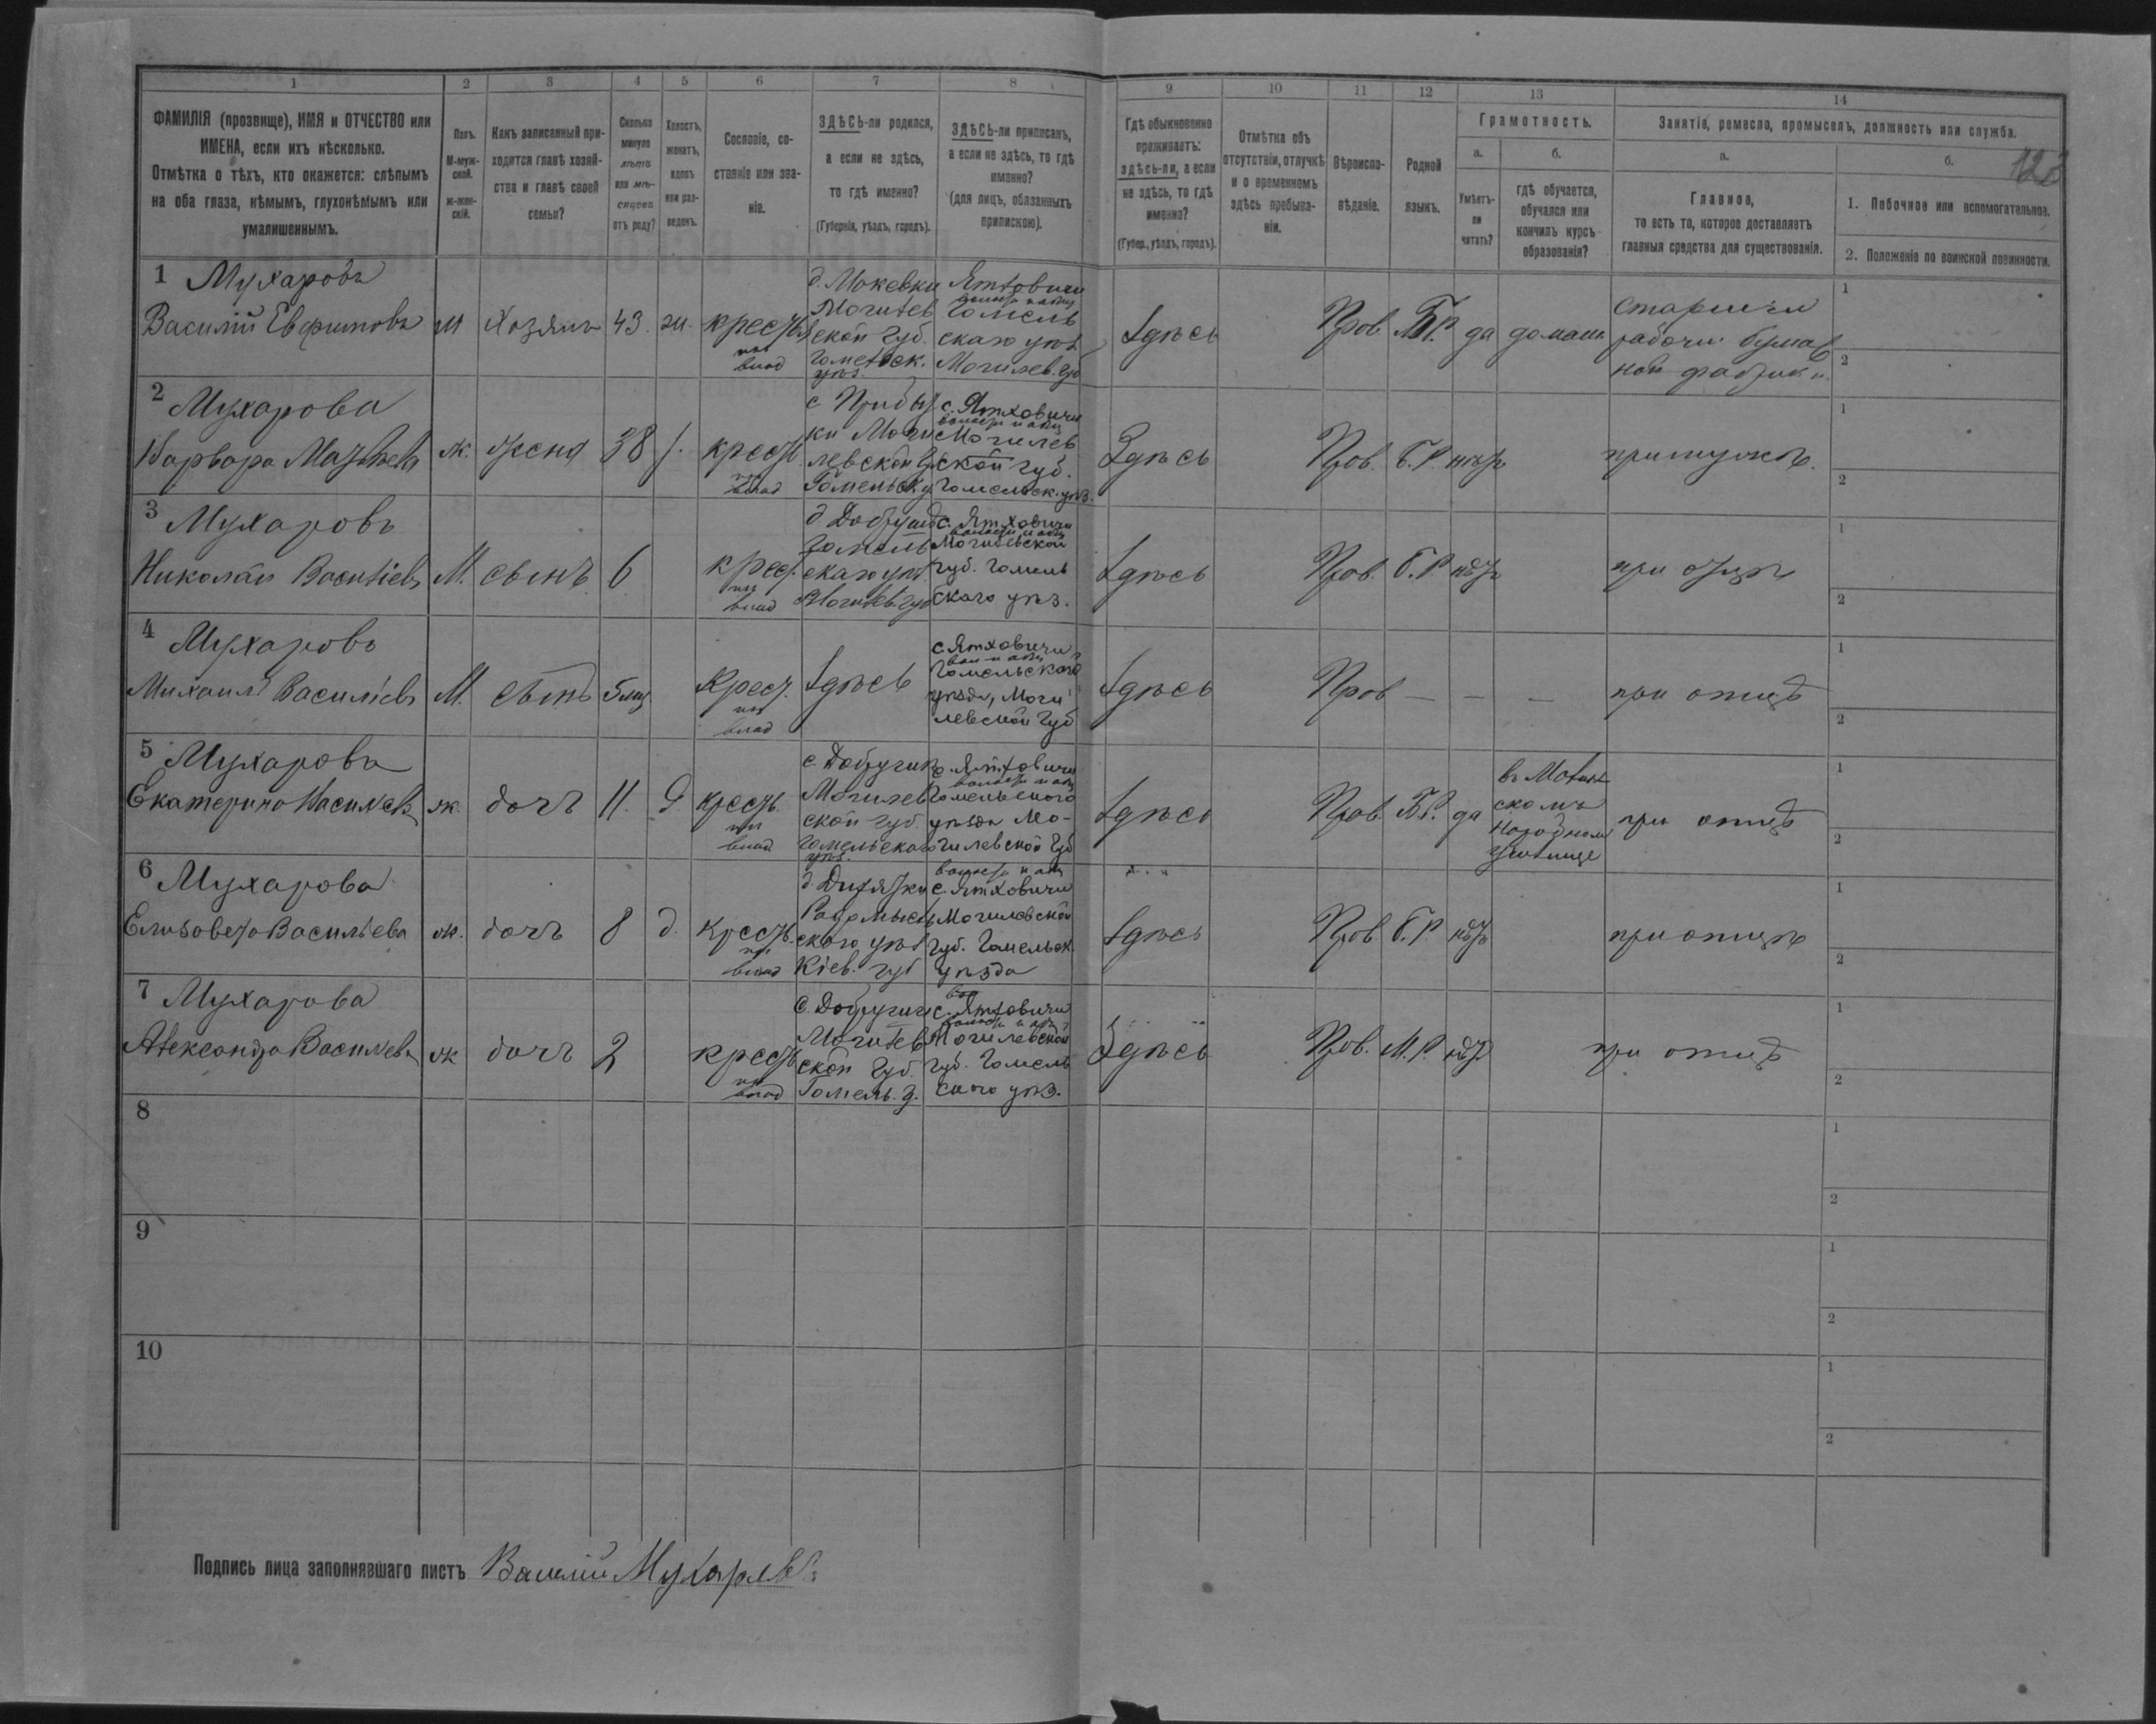 1 2 3 4 5 6 7 8 9 10 11 12 13 14
ФАМИЛІЯ (прозвище), ИМЯ и ОТЧЕСТВО или
ИМЕНА, если ихъ нѣсколько.
Отмѣтка о тѣхъ, кто окажется: слѣпымъ
на оба глаза, нѣмымъ, глухонѣмымъ или
умалишеннымъ.
Полъ.
М-муж-
ской.
Ж-жен-
скій.
Какъ записанный при-
ходится главѣ хозяй-
ства и главѣ своей
семьи?
Сколько
минуло
лѣтъ
или мѣ-
сяцевъ
отъ роду?
Холостъ,
женатъ,
вдовъ
или раз-
веденъ.
Сословіе, со-
стояніе или зва-
ніе.
ЗДѢСЬ-ли родился,
а если не здѣсь,
то гдѣ именно?
(Губернія, уѣздъ, городъ).
ЗДѢСЬ-ли приписанъ,
а если не здѣсь, то гдѣ
именно?
(для лицъ, обязанныхъ
припискою).
Гдѣ обыкновенно
проживаетъ:
здѣсь-ли, а если
не здѣсь, то гдѣ
именно?
(Губер., уѣздъ, городъ).
Отмѣтка объ
отсутствіи, отлучкѣ
и о временномъ
здѣсь пребыва-
ніи.
Вѣроиспо-
вѣданіе.
Родной
языкъ.
Грамотность.
а.
Умѣетъ-
ли
читать?
б.
гдѣ обучается,
обучался или
кончилъ курсъ
образованія?
Занятіе, ремесло, промыселъ, должность или служба.
а.
Главное,
то есть то, которое доставляетъ
главныя средства для существованія.
б.
1. Побочное или вспомогательное.
2. Положеніе по воинской повинности.
1 Мухаровъ
Василій Евфимовъ
м
Хозяинъ
43.
ж.
крестьян
из
влад
д. Мокевки
Могилев
ской Губ.
Гомельск.
уѣз.
Ятховичи
Гомель
скаго уѣз
Могилев. Губ
Здѣсь
Пров.
Б.Р.
да
домаш.
Старший
рабочи бумаж
ной фабрик
1
2
2 Мухарова
Варвара Матвѣев
ж.
жена
38
крест.
из
влад
с Прибыт
ки Моги
левской Г
Гомельск у
с. Ятховичи
Могилев
ской губ.
Гомельск. уѣз.
Здѣсь
Пров.
Б.Р
нѣтъ
при мужѣ.
1
2
3 Мухаровъ
Николай Василіевъ
М.
сынъ
6
крес.
из
влад
д Добруш
Гомель
скаго уѣз.
Могилев. губ
с. Ятховичи
Могилевской
губ. Гомель
скаго уѣз.
Здѣсь
Пров.
Б.Р
нѣтъ
при отцѣ
1
2
4 Мухаровъ
Михаилъ Василіевъ
М.
сынъ
5 мц
Крест.
из
влад
Здѣсь
с. Ятховичи
Гомельскаго
уѣзда, Моги
левской Губ
Здѣсь
Пров
— — —
при отцѣ
1
2
5 Мухарова
Екатерина Василев
ж.
дочь
11.
д.
крестъ.
из
влад
с. Добруши
Могилев
ской губ.
Гомельскаго
уѣз.
с. Ятховичи
Гомельскаго
уѣзда Мо-
гилевской Губ
Здѣсь
Пров.
Б.Р.
да
скомъ
народном
училище
при отцѣ
1
2
6 Мухарова
Елизавета Васильева
ж.
дочь
8
д.
Крестъ.
из
влад
д Дитятки
Радомысл
скаго уѣз
Кіев. губ
с. Ятховичи
Могилевской
губ. Гомельск
уѣзда
Здѣсь
Пров
Б.Р.
нѣтъ
при отцѣ
1
2
7 Мухарова
Александра Василев
ж
дочь
2
крестъ
из
влад
с Добруши
Могилев
ской Губ.
Гомель. у.
с. Ятховичи
Могилевской
губ. Гомель
скаго уѣз.
Здѣсь
Пров.
М.Р.
нѣт
при отцѣ
1
2
8
1
2
9
1
2
10
1
2
Подпись лица заполнявшаго листъ Василій Мухаровъ